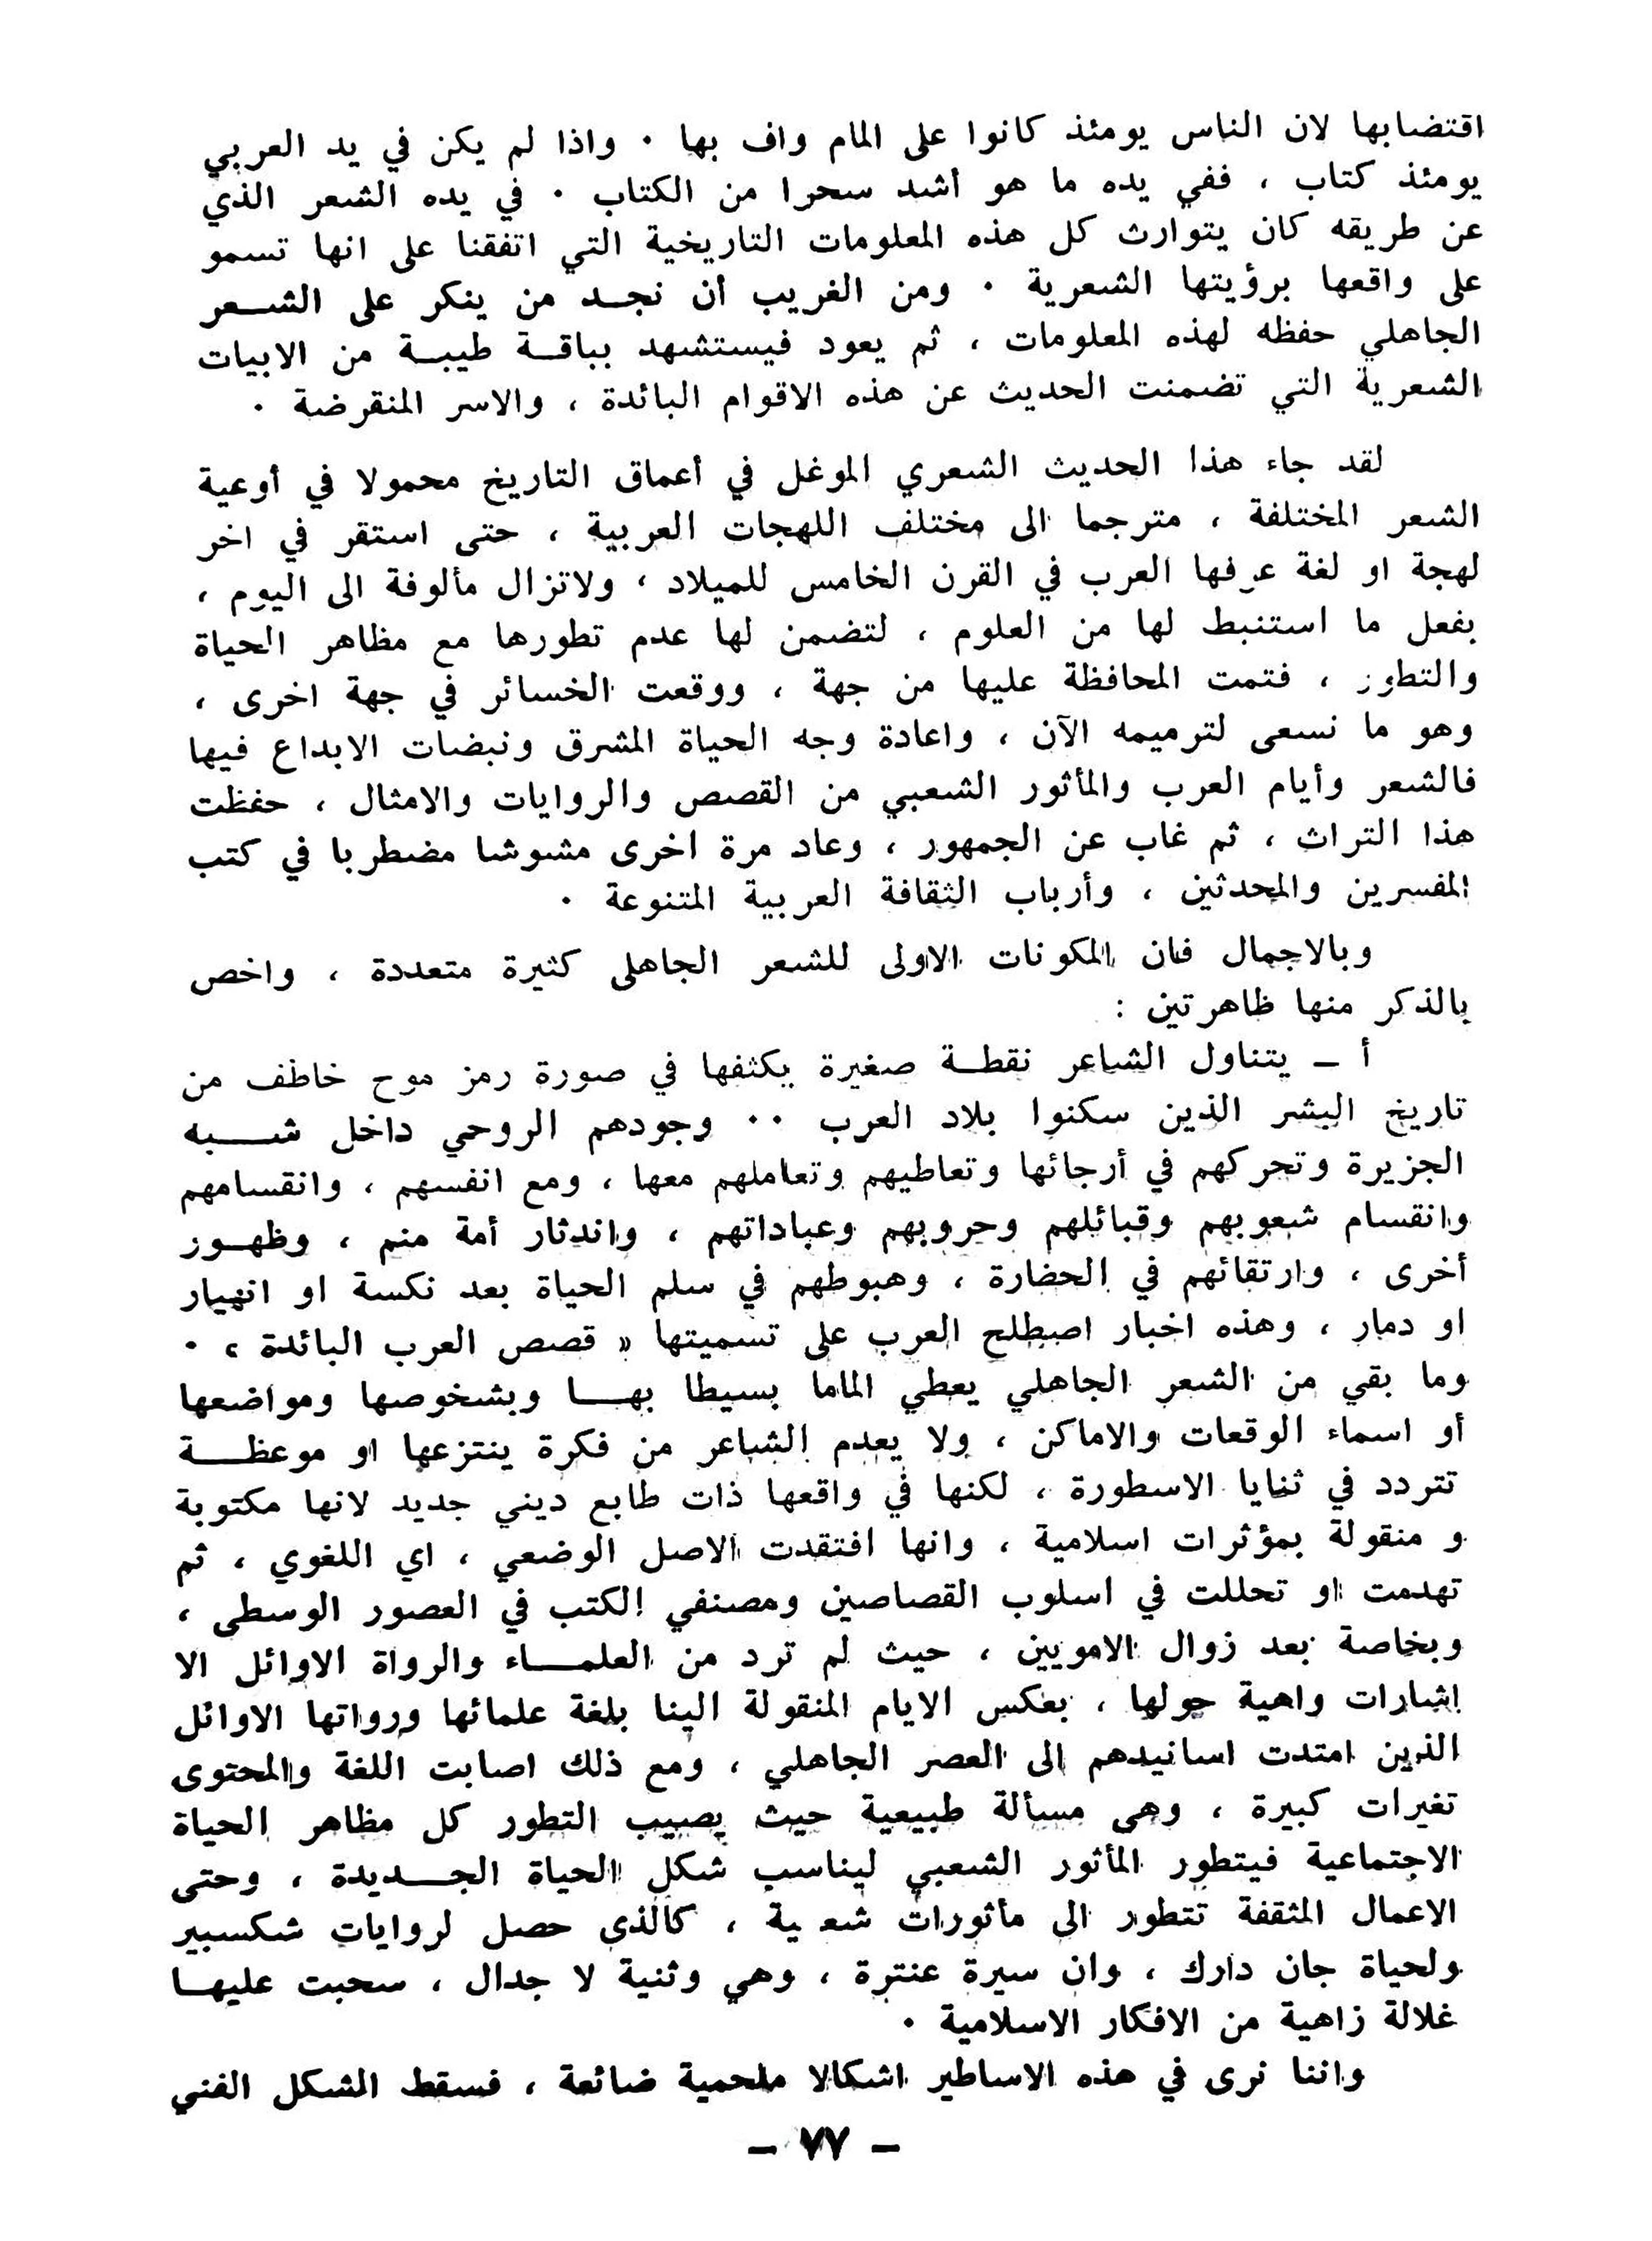 اقتضابها لان الناس يومئذ كانوا على المام واف بها . واذا لم يكن في يد العربي
يومئذ كتاب ، ففي يده ما هو أشد سحرا من الكتاب . في يده الشعر الذي
عن طريقه كان يتوارث كل هذه المعلومات التاريخية التي اتفقنا على انها تسمو
على واقعها برؤيتها الشعرية . ومن الغريب أن نجد من ينكر على الشعر
الجاهلي حفظه لهذه المعلومات ، ثم يعود فيستشهد بباقة طيبة من الابيات
الشعرية التي تضمنت الحديث عن هذه الاقوام البائدة ، والاسر المنقرضة .
لقد جاء هذا الحديث الشعري الموغل في أعماق التاريخ محمولا في أوعية
الشعر المختلفة ، مترجما الى مختلف اللهجات العربية ، حتى استقر في اخر
لهجة او لغة عرفها العرب في القرن الخامس للميلاد ، ولاتزال مألوفة الى اليوم ،
بفعل ما استنبط لها من العلوم ، لتضمن لها عدم تطورها مع مظاهر الحياة
والتطور ، فتمت المحافظة عليها من جهة ، ووقعت الخسائر في جهة اخرى ،
وهو ما نسعى لترميمه الآن ، واعادة وجه الحياة المشرق ونبضات الابداع فيها
فالشعر وأيام العرب والمأثور الشعبي من القصص والروايات والامثال ، حفظت
هذا التراث ، ثم غاب عن الجمهور ، وعاد مرة اخرى مشوشا مضطربا في كتب
المفسرين والمحدثين ، وأرباب الثقافة العربية المتنوعة .
وبالاجمال فان المكونات الاولى للشعر الجاهلي كثيرة متعددة ، واخص
بالذكر منها ظاهرتين :
أ ـ يتناول الشاعر نقطة صغيرة يكثفها في صورة رمز موح خاطف من
تاريخ البشر الذين سكنوا بلاد العرب .. وجودهم الروحي داخل شبه
الجزيرة وتحركهم في أرجائها وتعاطيهم وتعاملهم معها ، ومع انفسهم ، وانقسامهم
وانقسام شعوبهم وقبائلهم وحروبهم وعباداتهم ، واندثار أمة منم ، وظهور
أخرى ، وارتقائهم في الحضارة ، وهبوطهم في سلم الحياة بعد نكسة او انهيار
او دمار ، وهذه اخبار اصطلح العرب على تسميتها « قصص العرب البائدة » .
وما بقي من الشعر الجاهلي يعطي الماما بسيطا بها وبشخوصها ومواضعها
أو اسماء الوقعات والاماكن ، ولا يعدم الشاعر من فكرة ينتزعها او موعظة
تتردد في ثنايا الاسطورة ، لكنها في واقعها ذات طابع ديني جديد لانها مكتوبة
و منقولة بمؤثرات اسلامية ، وانها افتقدت الاصل الوضعي ، اي اللغوي ، ثم
تهدمت او تحللت في اسلوب القصاصين ومصنفي الكتب في العصور الوسطى ،
وبخاصة بعد زوال الامويين ، حيث لم ترد من العلماء والرواة الاوائل الا
اشارات واهية حولها ، بعكس الايام المنقولة الينا بلغة علمائها ورواتها الاوائل
الذين امتدت اسانيدهم الى العصر الجاهلي ، ومع ذلك اصابت اللغة والمحتوى
تغيرات كبيرة ، وهي مسألة طبيعية حيث يصيب التطور كل مظاهر الحياة
الاجتماعية فيتطور المأثور الشعبي ليناسب شكل الحياة الجديدة ، وحتى
الاعمال المثقفة تتطور الى مأثورات شعبية ، كالذي حصل لروايات شكسبير
ولحياة جان دارك ، وان سيرة عنترة ، وهي وثنية لا جدال ، سحبت عليها
غلالة زاهية من الافكار الاسلامية .
واننا نرى في هذه الاساطير اشكالا ملحمية ضائعة ، فسقط الشكل الفني
ـ ٧٧ ـ